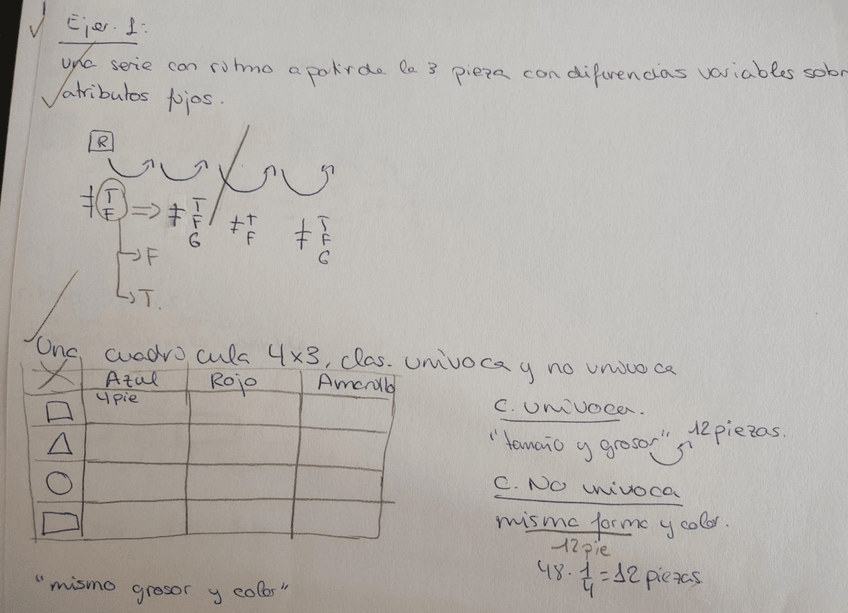 Ejer. 1:
una serie con ritmo a partir de la 3 pieza con diferencias variables sobr
atributos fijos.
R
≠ T F => ≠ T F G ≠ T F ≠ T F G
F
T.
Una cuadro cula 4x3, clas. univoca y no univoca
Azul Rojo Amarillo
4 pie
C. univoca.
"tamaño y grosor" 12 piezas.
C. No univoca
misma forma y color.
12 pie
48 · 1/4 = 12 piezas
"mismo grosor y color"